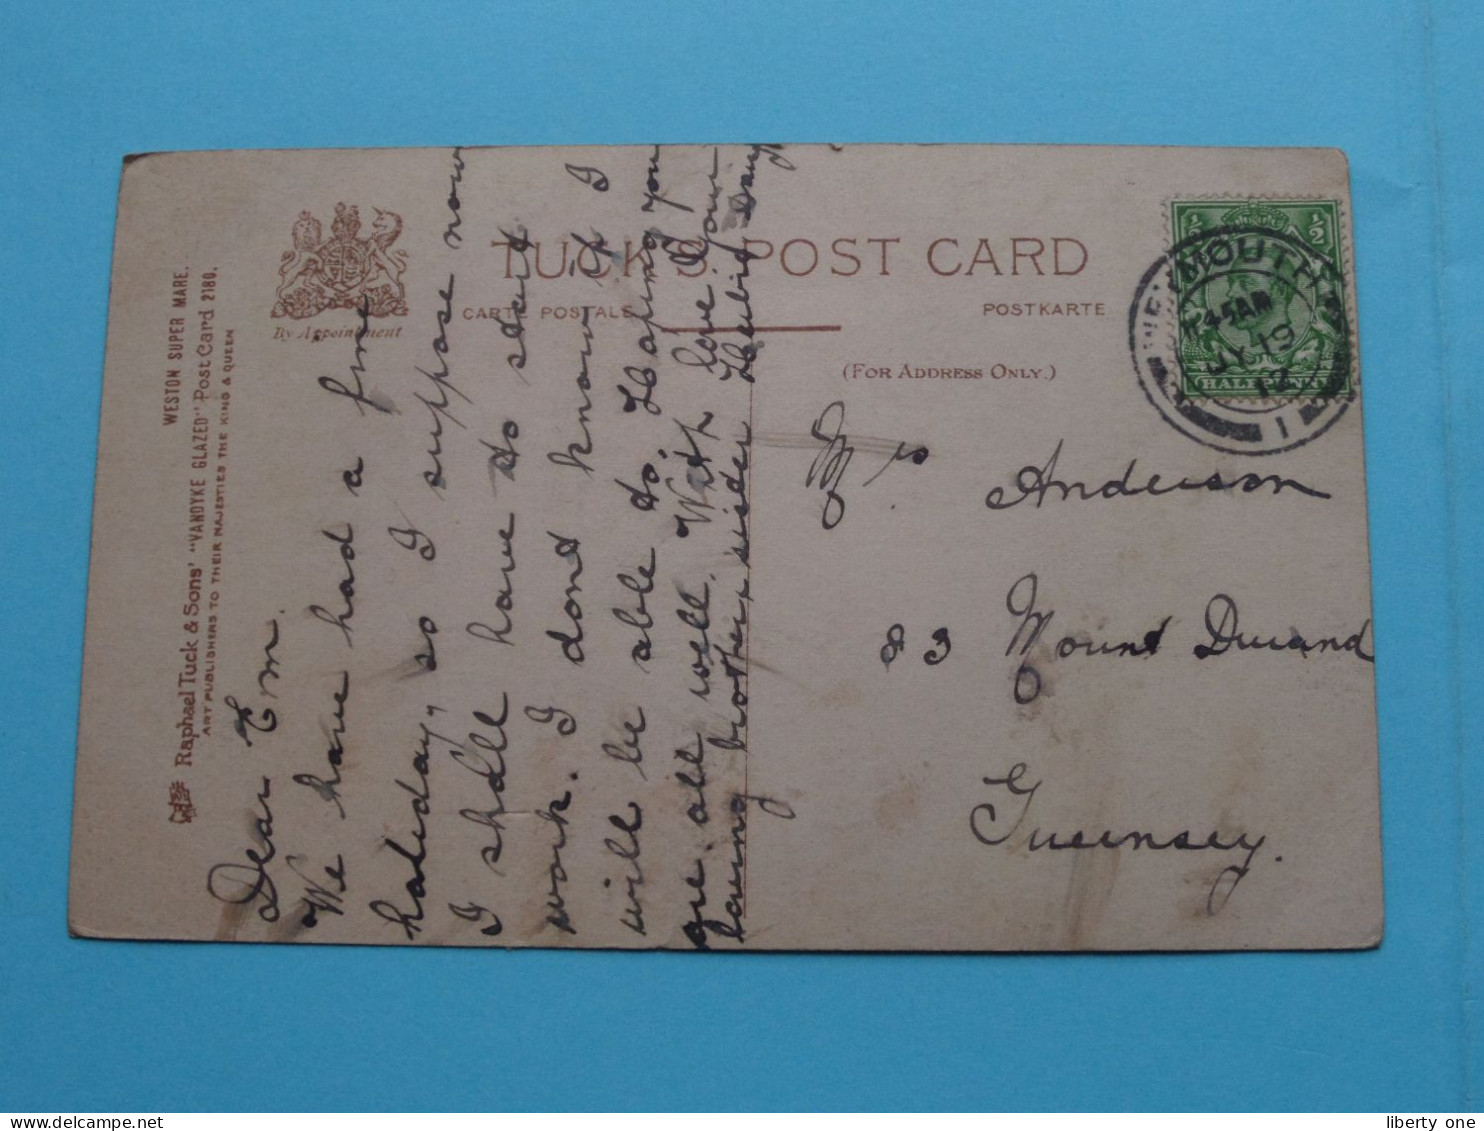 WESTON SUPER MARE.
Raphael Tuck & Sons' "VANDYKE GLAZED" Post Card 2180.
ART PUBLISHERS TO THEIR MAJESTIES THE KING & QUEEN
By Appointment
TUCK'S POST CARD
CARTE POSTALE
POSTKARTE
(FOR ADDRESS ONLY.)
½ ½
HALFPENNY
WEYMOUTH
45AM
JY 19
12
1
Dear Em.
We have had a fine
holiday, so I suppose now
I shall have to start
work. I dont know if I
will be able to. Hoping you
are all well. With love from Your
loving brother, sister
Mrs Anderson
83 Mount Durand
Guernsey.
liberty one